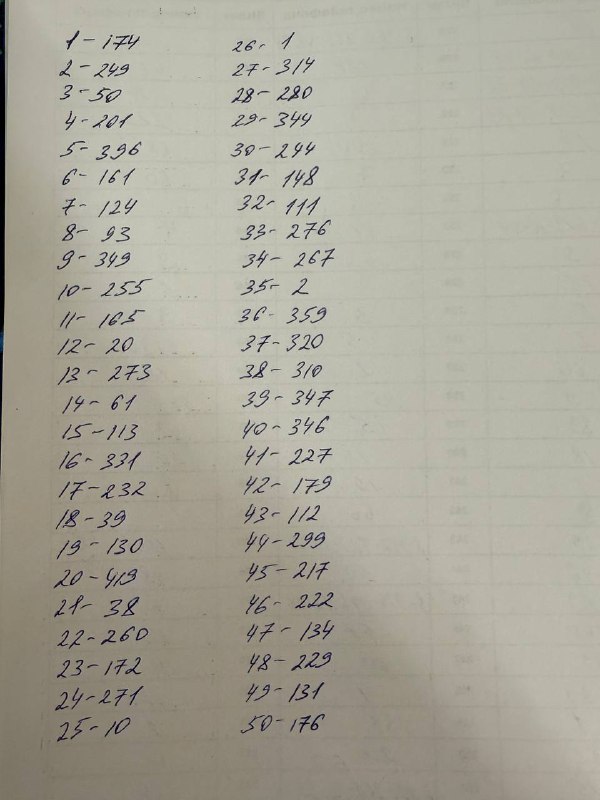 1 - 174
2 - 249
3 - 50
4 - 201
5 - 396
6 - 161
7 - 124
8 - 93
9 - 349
10 - 255
11 - 165
12 - 20
13 - 273
14 - 61
15 - 113
16 - 331
17 - 232
18 - 39
19 - 130
20 - 419
21 - 38
22 - 260
23 - 172
24 - 271
25 - 10
26 - 1
27 - 314
28 - 280
29 - 344
30 - 244
31 - 148
32 - 111
33 - 276
34 - 267
35 - 2
36 - 359
37 - 320
38 - 310
39 - 347
40 - 346
41 - 227
42 - 179
43 - 112
44 - 299
45 - 217
46 - 222
47 - 134
48 - 229
49 - 131
50 - 176